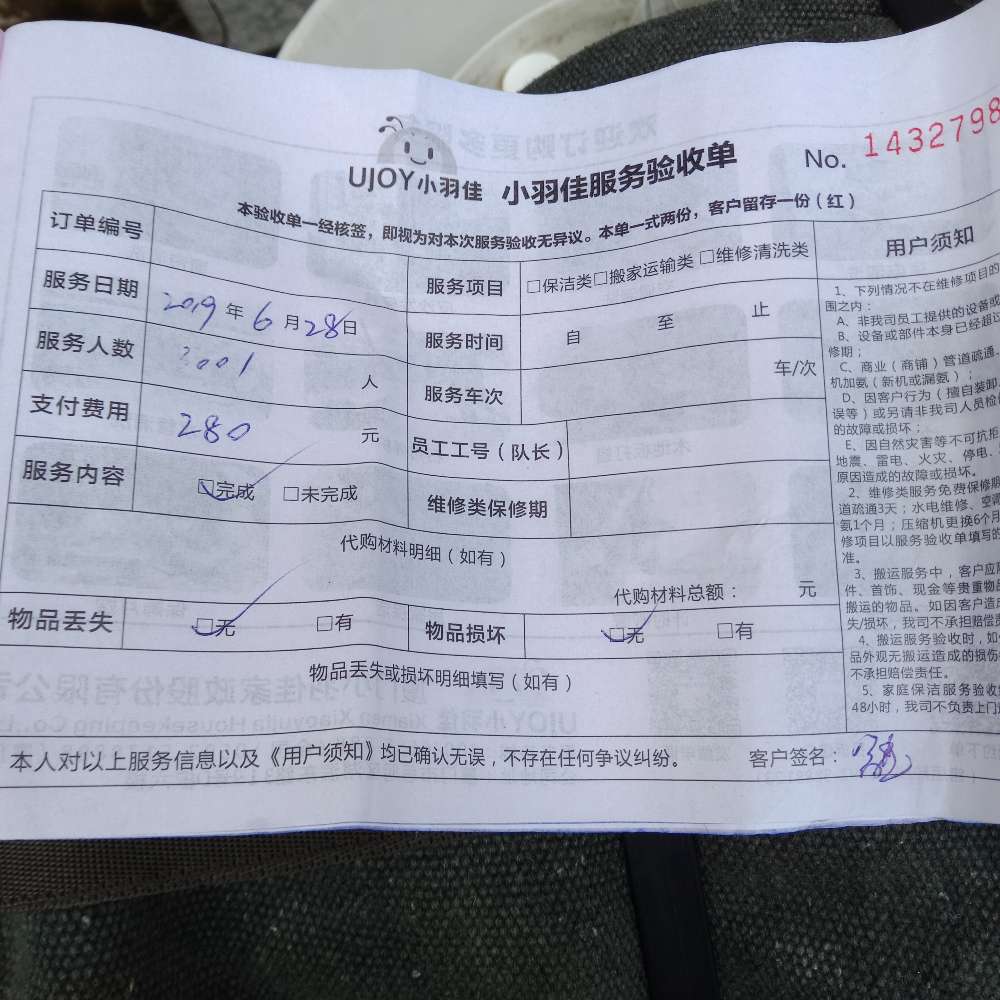 UJOY小羽佳 小羽佳服务验收单 No. 1432798
本验收单一经核签，即视为对本次服务验收无异议。本单一式两份，客户留存一份（红）
订单编号
服务项目 □保洁类□搬家运输类 □维修清洗类
服务日期 2019年6月28日
服务时间 自 至 止
服务人数 人
服务车次 车/次
支付费用 280 元
员工工号（队长）
服务内容 □完成 □未完成
维修类保修期
代购材料明细（如有）
代购材料总额： 元
物品丢失 □无 □有
物品损坏 □无 □有
物品丢失或损坏明细填写（如有）
本人对以上服务信息以及《用户须知》均已确认无误，不存在任何争议纠纷。 客户签名：
用户须知
1、下列情况不在维修项目的
围之内：
A、非我司员工提供的设备或
B、设备或部件本身已经超过
修期；
C、商业（商铺）管道疏通、
机加氨（新机或漏氨）；
D、因客户行为（擅自装卸、
误等）或另请非我司人员检
的故障或损坏；
E、因自然灾害等不可抗拒
地震、雷电、火灾、停电、
原因造成的故障或损坏。
2、维修类服务免费保修期
道疏通3天；水电维修、空
氨1个月；压缩机更换6个月
修项目以服务验收单填写的
准。
3、搬运服务中，客户应
件、首饰、现金等贵重物品
搬运的物品。如因客户造成
失/损坏，我司不承担赔偿责
4、搬运服务验收时，如
品外观无搬运造成的损伤
不承担赔偿责任。
5、家庭保洁服务验收
48小时，我司不负责上门